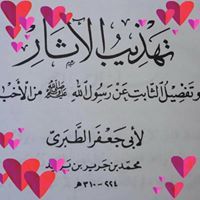 تهذيب الآثار
وتفصيل الثابت عن رسول الله ﷺ من الأخب
لأبي جعفر الطبري
محمد بن جرير بن يزيد
٢٢٤ - ٣١٠هـ